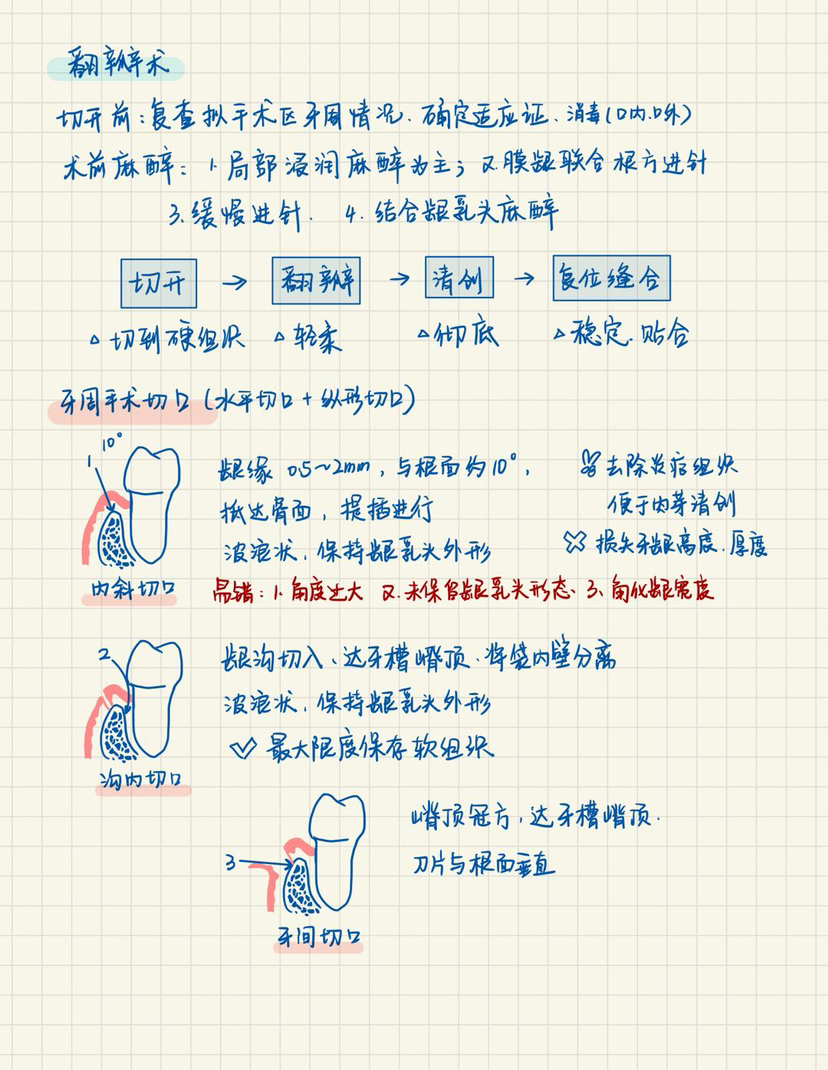 翻瓣术
切开前:复查拟手术区牙周情况、确定适应证、消毒(口内、口外)
术前麻醉: 1.局部浸润麻醉为主; 2.膜龈联合根方进针
3.缓慢进针. 4.结合龈乳头麻醉
切开 → 翻瓣 → 清创 → 复位缝合
△切到硬组织 △轻柔 △彻底 △稳定.贴合
牙周手术切口(水平切口+纵形切口)
1 10°
龈缘 0.5~2mm, 与根面约10°,
抵达骨面, 提插进行
波浪状, 保持龈乳头外形
去除炎症组织
便于肉芽清创
损失牙龈高度.厚度
内斜切口
易错: 1.角度过大 2.未保留龈乳头形态、3.角化龈宽度
2
龈沟切入、达牙槽嵴顶.将袋内壁分离
波浪状, 保持龈乳头外形
最大限度保存软组织
沟内切口
3
嵴顶冠方, 达牙槽嵴顶.
刀片与根面垂直
牙间切口